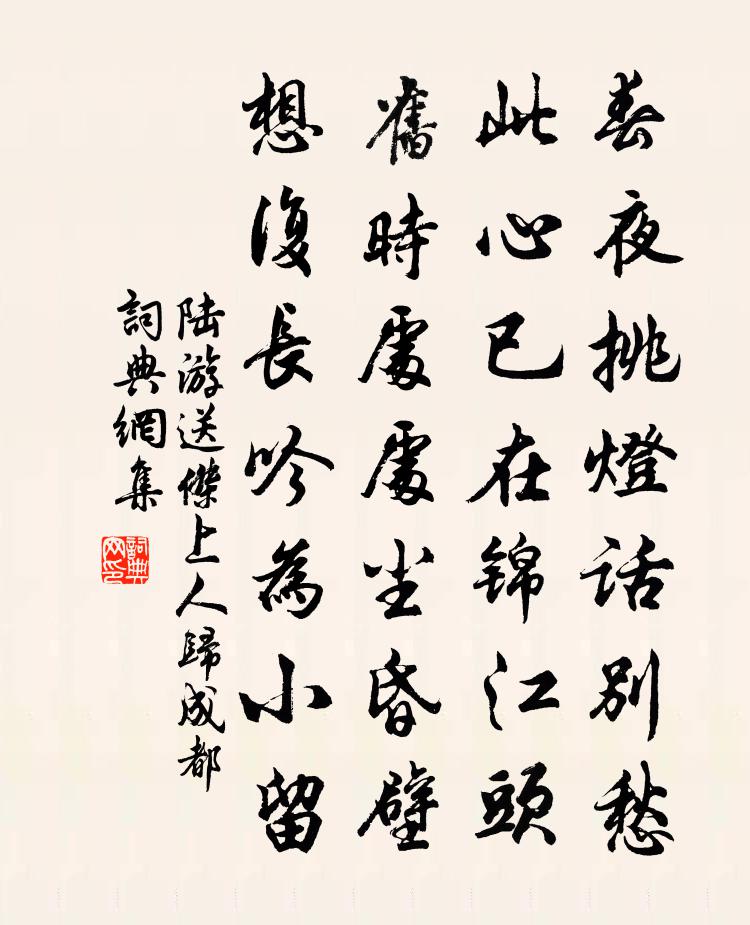 春夜挑燈話別愁
此心已在錦江頭
舊時處處尘昏壁
想復長吟為小留
陸游送傑上人歸成都
詞典網集
詞典
网印